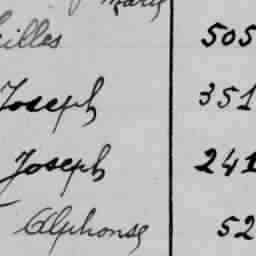 Marie
illes 505
Joseph 351
Joseph 241
Alphonse 52